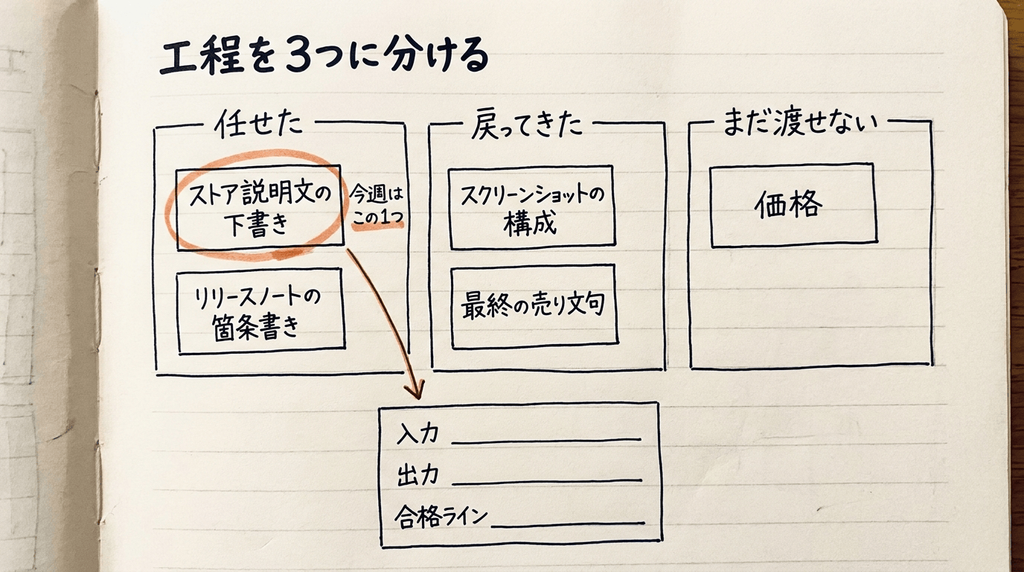 工程を3つに分ける
任せた
ストア説明文の
下書き
今週は
この1つ
リリースノートの
箇条書き
戻ってきた
スクリーンショットの
構成
最終の売り文句
まだ渡せない
価格
入力
出力
合格ライン